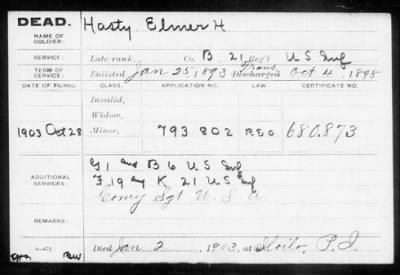 DEAD.
NAME OF SOLDIER:
Hasty, Elmer H
SERVICE:
Late rank, Co. B, 21 Reg't U S Inf
TERM OF SERVICE:
Enlisted Jan 25, 1893 Trans Discharged Oct 4, 1898
DATE OF FILING. CLASS. APPLICATION NO. LAW. CERTIFICATE NO.
Invalid,
Widow,
1903 Oct 28 Minor, 793 802 REO 680.873
ADDITIONAL SERVICES:
G 1 and B 6 U S Inf
F 19 and K 21 U S Inf
Comy Sgt U. S. A.
REMARKS:
Died Jan 2, 1903, at Iloilo, P. I.